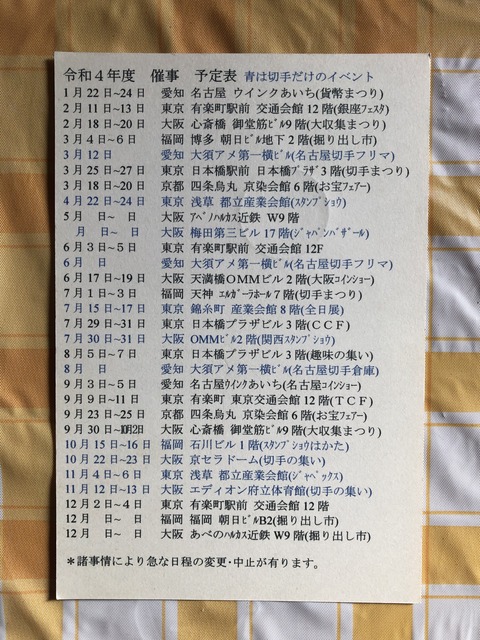 令和４年度　催事　予定表　青は切手だけのイベント
1月22日~24日　愛知 名古屋 ウインクあいち(貨幣まつり)
2月11日~13日　東京 有楽町駅前 交通会館12階(銀座ﾌｪｽﾀ)
2月18日~20日　大阪 心斎橋 御堂筋ﾋﾞﾙ9階(大収集まつり)
3月4日~6日　福岡 博多 朝日ﾋﾞﾙ地下2階(掘り出し市)
3月12日　愛知 大須アメ第一横ﾋﾞﾙ(名古屋切手フリマ)
3月25日~27日　東京 日本橋駅前 日本橋ﾌﾟﾗｻﾞ3階(切手まつり)
3月18日~20日　京都 四条烏丸 京染会館6階(お宝ﾌｪｱｰ)
4月22日~24日　東京 浅草 都立産業会館(ｽﾀﾝﾌﾟｼｮｳ)
5月　日~　日　大阪 ｱﾍﾞﾉﾊﾙｶｽ近鉄 W9階
月　日~　日　大阪 梅田第三ビル17階(ｼﾞｬﾊﾟﾝﾊﾞｻﾞｰﾙ)
6月3日~5日　東京 有楽町駅前 交通会館12F
6月　日　愛知 大須アメ第一横ﾋﾞﾙ(名古屋切手フリマ)
6月17日~19日　大阪 天満橋OMMビル2階(大阪ｺｲﾝｼｮｰ)
7月1日~3日　福岡 天神 ｴﾙｶﾞｰﾗﾎｰﾙ7階(切手まつり)
7月15日~17日　東京 錦糸町 産業会館8階(全日展)
7月29日~31日　東京 日本橋プラザビル3階(CCF)
7月30日~31日　大阪 OMMﾋﾞﾙ2階(関西ｽﾀﾝﾌﾟｼｮｳ)
8月5日~7日　東京 日本橋プラザビル3階(趣味の集い)
8月　日　愛知 大須アメ第一横ﾋﾞﾙ(名古屋切手倉庫)
9月3日~5日　愛知 名古屋ｳｲﾝｸあいち(名古屋ｺｲﾝｼｮｰ)
9月9日~11日　東京 有楽町 東京交通会館12階(TCF)
9月23日~25日　京都 四条烏丸 京染会館6階(お宝ﾌｪｱｰ)
9月30日~10月2日　大阪 心斎橋 御堂筋ﾋﾞﾙ9階(大収集まつり)
10月15日~16日　福岡 石川ビル1階(ｽﾀﾝﾌﾟｼｮウはかた)
10月22日~23日　大阪 京セラドーム(切手の集い)
11月4日~6日　東京 浅草 都立産業会館(ｼﾞｬﾍﾟｯｸｽ)
11月12日~13日　大阪 エディオン府立体育館(切手の集い)
12月2日~4日　東京 有楽町駅前 交通会館12階
12月　日~　日　福岡 福岡 朝日ビルB2(掘り出し市)
12月　日~　日　大阪 あべのﾊﾙｶｽ近鉄 W9階(掘り出し市)
＊諸事情により急な日程の変更・中止が有ります。